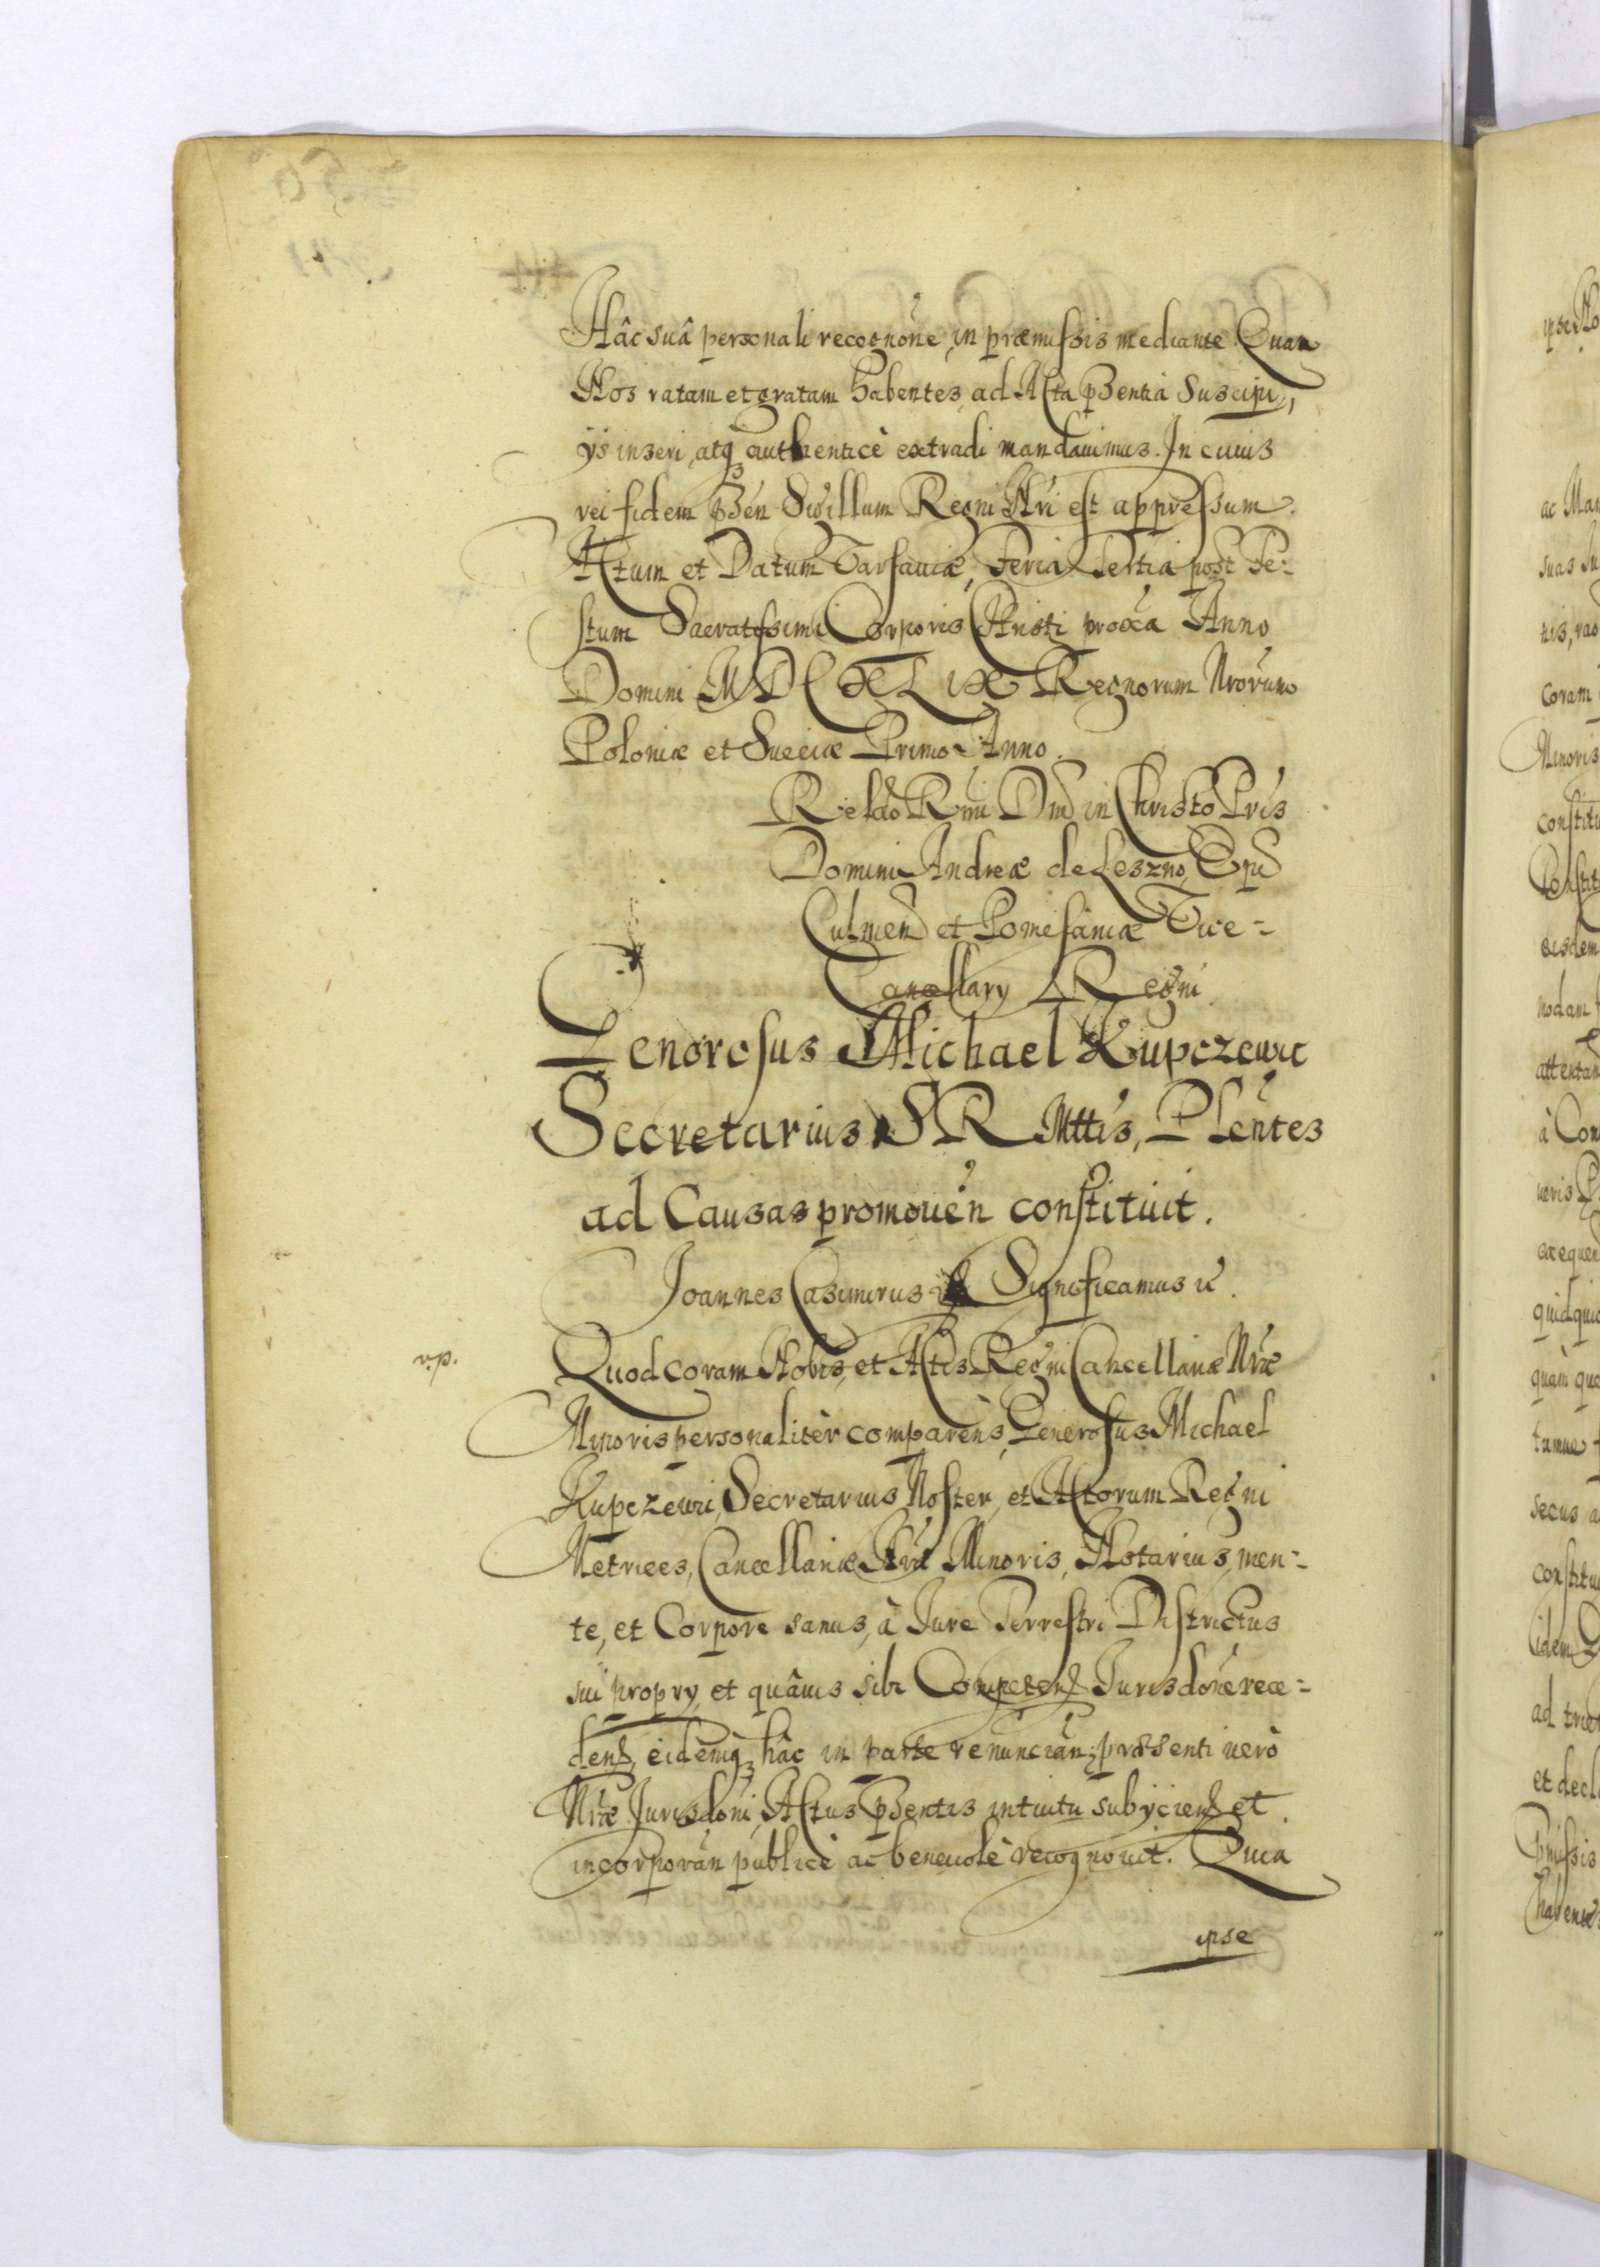 Hâc suâ personali recognõne in præmissis mediante. Quam
Nos ratam et gratam habentes, ad Acta pȝentia Suscipi,
ijs inseri, atqȝ authenticè extradi mandauimus. In cuius
rei fidem pȝen Sigillum Regni Nri est appressum.
Actum et Datum Varsauiæ, Feria Tertia post Fe-
stum Sacratissimi Corporis Christi proxa Anno
Domini MDCXLIX Regnorum Nrorum
Poloniæ et Sueciæ Primo Anno.
Relão Rmi Dni in Christo Pris
Domini Andreæ de Leszno, Epi
Culmen et Pomesaniæ Vice-
Cancellary Regni
Generosus Michael Kupczewic
Secretarius S R Mttis, Plentes
ad Causas promouen constituit.
Joannes Casimirus Significamus
v.p.
Quod coram Nobis, et Actis Regni Cancellariæ Nræ
Minoris personalitèr comparens, Generosus Michael
Kupczewic, Secretarius Noster, et Actorum Regni
Metrices, Cancellariæ Nræ Minoris, Notarius, men-
te, et Corpore sanus, à Jure Terrestri Districtus
sui propry, et quâuis sibi Competen Jurisdone rece-
dens, eidemqȝ hâc in parte renuncian, præsenti uerò
Nræ Jurisdoni, Actus pȝentis intuitu subyciens et
incorporan publicè ac beneuolè recognouit. Quia
ipse
ipse No
ac Man
suas
coram
Minoris
constitu
eisdem
nodam
attentan
à Con
ueris
exequen
quidquid
quàm
secus a
constitu
idem
ad
et decl